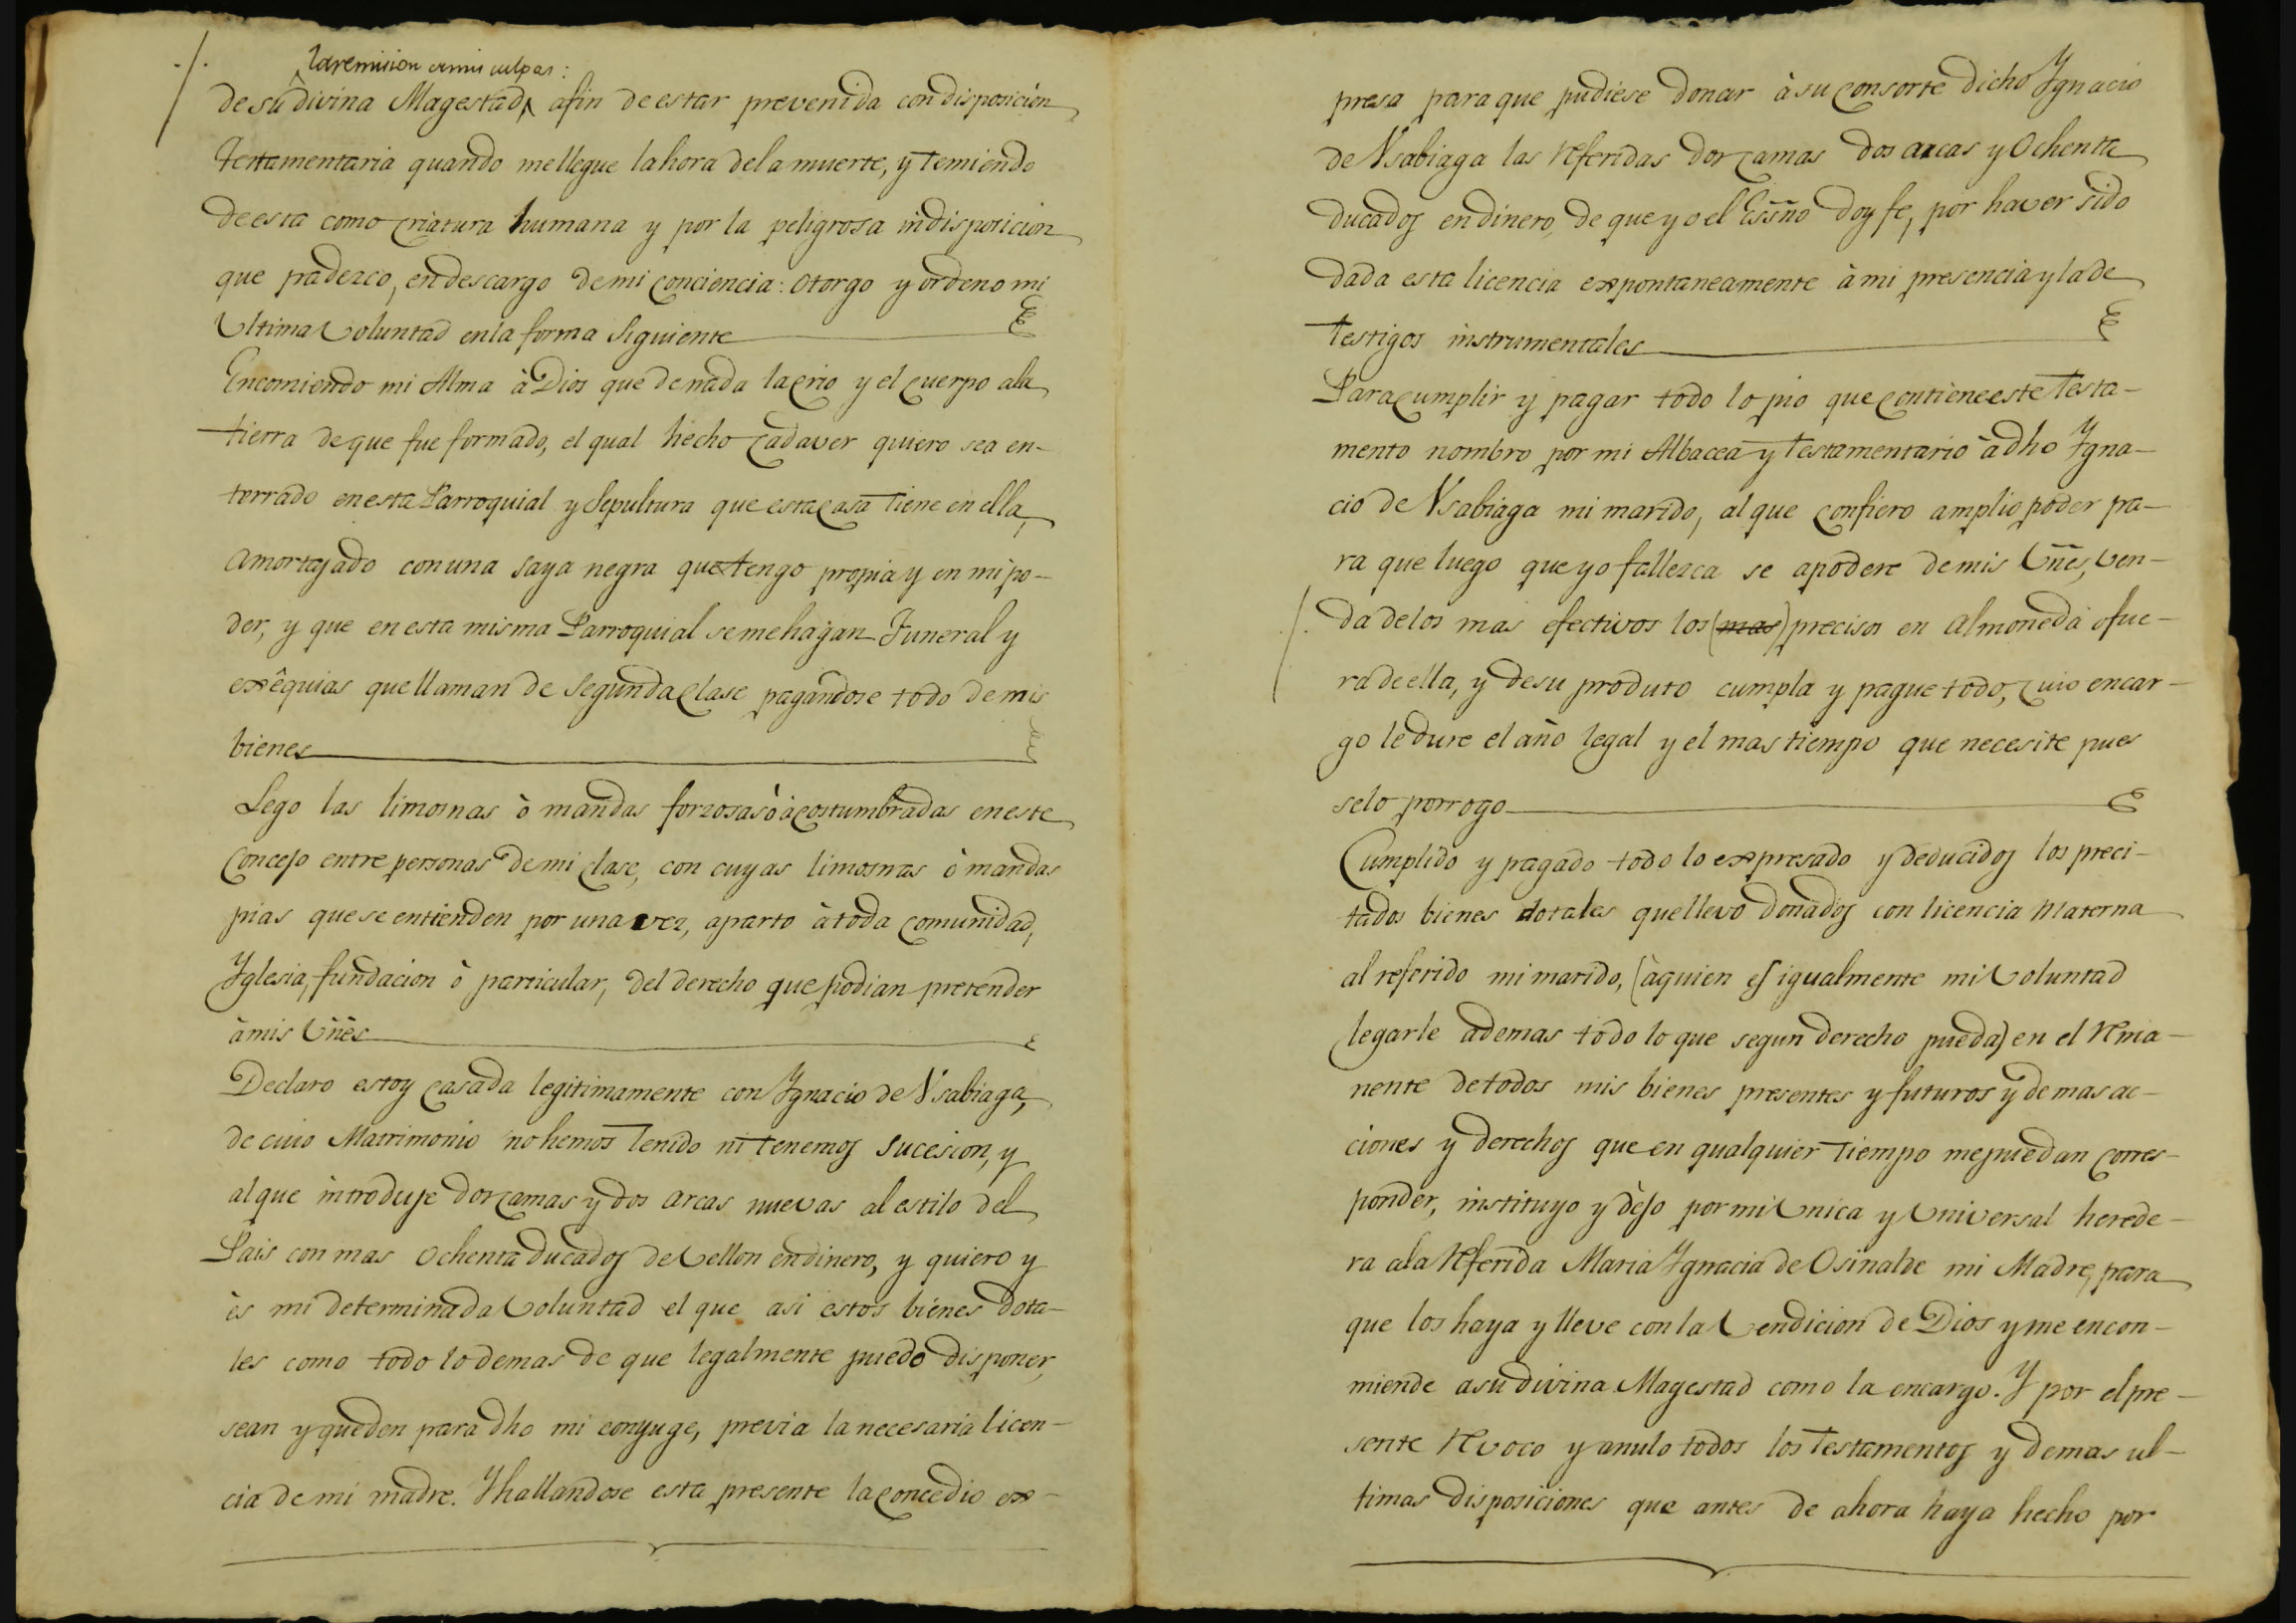 la remision de mis culpas:
de su divina Magestad, afin de estar prevenida con disposición
Testamentaria quando me llegue la hora de la muerte, y temiendo
de esta como criatura humana y por la peligrosa indisposicion
que padezco, en descargo de mi conciencia: otorgo y ordeno mi
Ultima Voluntad en la forma siguiente
Encomiendo mi Alma à Dios que de nada la crio y el cuerpo a la
tierra de que fue formado, el qual hecho cadaver quiero sea en-
terrado en esta Parroquial y Sepultura que esta casa tiene en ella,
amortajado con una saya negra que tengo propia y en mi po-
der, y que en esta misma Parroquial se me hagan Funeral y
exêquias que llaman de segunda clase pagandose todo de mis
bienes
Lego las limosnas ò mandas forzosas ò acostumbradas en este
Concejo entre personas de mi clase, con cuyas limosnas ò mandas
pias que se entienden por una vez, aparto à toda comunidad,
Yglesia, fundacion ò particular, del derecho que podian pretender
à mis Vñes
Declaro estoy casada legitimamente con Ygnacio de Vsabiaga,
de cuio Matrimonio no hemos tenido ni tenemos sucesion, y
al que introduje dos camas y dos arcas nuevas al estilo del
Pais con mas ochenta ducados de Vellon en dinero, y quiero y
ès mi determinada Voluntad el que asi estos bienes dota-
les como todo lo demas de que legalmente puedo disponer,
sean y queden para dho mi conyuge, previa la necesaria licen-
cia de mi madre. Y hallandose esta presente la concedio ex-
presa para que pudiese donar à su consorte dicho Ygnacio
de Vsabiaga las referidas dos camas dos arcas y Ochenta
ducados en dinero, de que yo el Essño doy fe, por haver sido
dada esta licencia expontaneamente à mi presencia y la de
testigos instrumentales
Para cumplir y pagar todo lo pio que contiene este Testa-
mento nombro por mi Albacea y Testamentario à dho Ygna-
cio de Vsabiaga mi marido, al que confiero amplio poder pa-
ra que luego que yo fallezca se apodere de mis Vñes, ven-
da de los mas efectivos los (mas) precisos en almoneda ò fue-
ra de ella, y de su produto cumpla y pague todo, cuio encar-
go le dure el año legal y el mas tiempo que necesite pues
se lo porrogo
Cumplido y pagado todo lo expresado y deducidos los preci-
tados bienes dotales que llevo donados con licencia Materna
al referido mi marido, (à quien es igualmente mi Voluntad
legarle ademas todo lo que segun derecho pueda) en el rema-
nente de todos mis bienes presentes y futuros y demas ac-
ciones y derechos que en qualquier tiempo me puedan corres-
ponder, instituyo y dejo por mi Unica y Universal herede-
ra a la referida Maria Ygnacia de Osinalde mi Madre, para
que los haya y lleve con la Vendicion de Dios y me encon-
miende a su divina Magestad como la encargo. Y por el pre-
sente revoco y anulo todos los Testamentos y demas ul-
timas disposiciones que antes de ahora haya hecho por